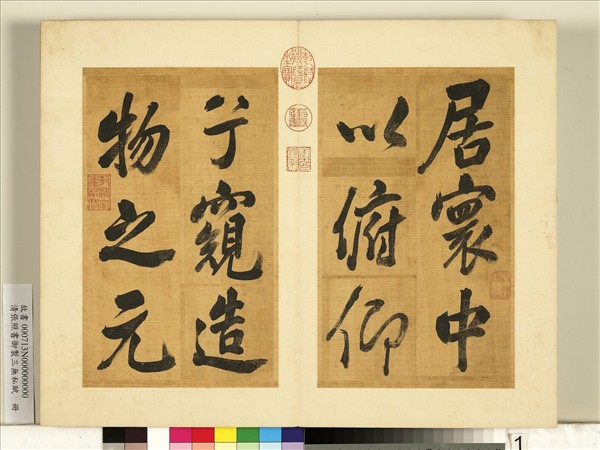 居寰中
以俯仰
兮窺造
物之元
故書 000713N000000000
清張照書御製三無私賦 冊
1